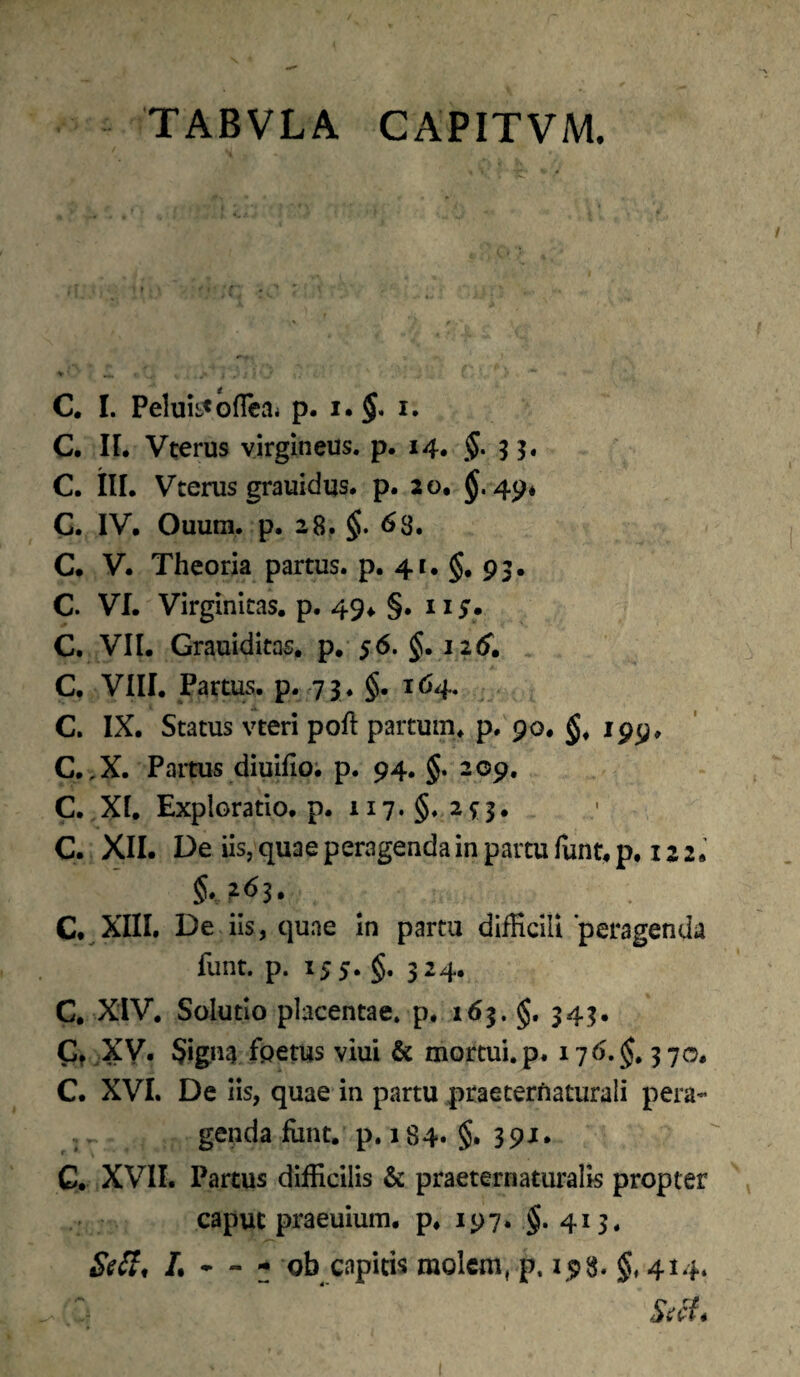 TABVLA CAPITVM.
C. I. Peluis ossea. p. 1. §. 1.
C. II. Vterus virgineus. p. 14. §. 33.
C. III. Vterus grauidus. p. 20. §. 49.
C. IV. Ouum. p. 28. §. 68.
C. V. Theoria partus. p. 41. §. 93.
C. VI. Virginitas. p. 49. §. 115.
C. VII. Grauiditas. p. 56. §. 126.
C. VIII. Partus. p. 73. §. 164.
C. IX. Status vteri post partum. p. 90. §. 199.
C. X. Partus diuisio. p. 94. §. 209.
C. XI. Exploratio. p. 117. §. 253.
C. XII. De iis, quae peragenda in partu sunt. p. 122.
§. 263.
C. XIII. De iis, quae in partu difficili peragenda
sunt. p. 155. §. 324.
C. XIV. Solutio placentae. p. 163. §. 343.
C. XV. Signa foetus viui & mortui. p. 176. §. 370.
C. XVI. De iis, quae in partu praeternaturali pera-
genda sunt. p. 184. §. 391.
C. XVII. Partus difficilis & praeternaturalis propter
caput praeuium. p. 197. §. 413.
Sect. I. - - - ob capitis molem, p. 198. §. 414.
Sect.